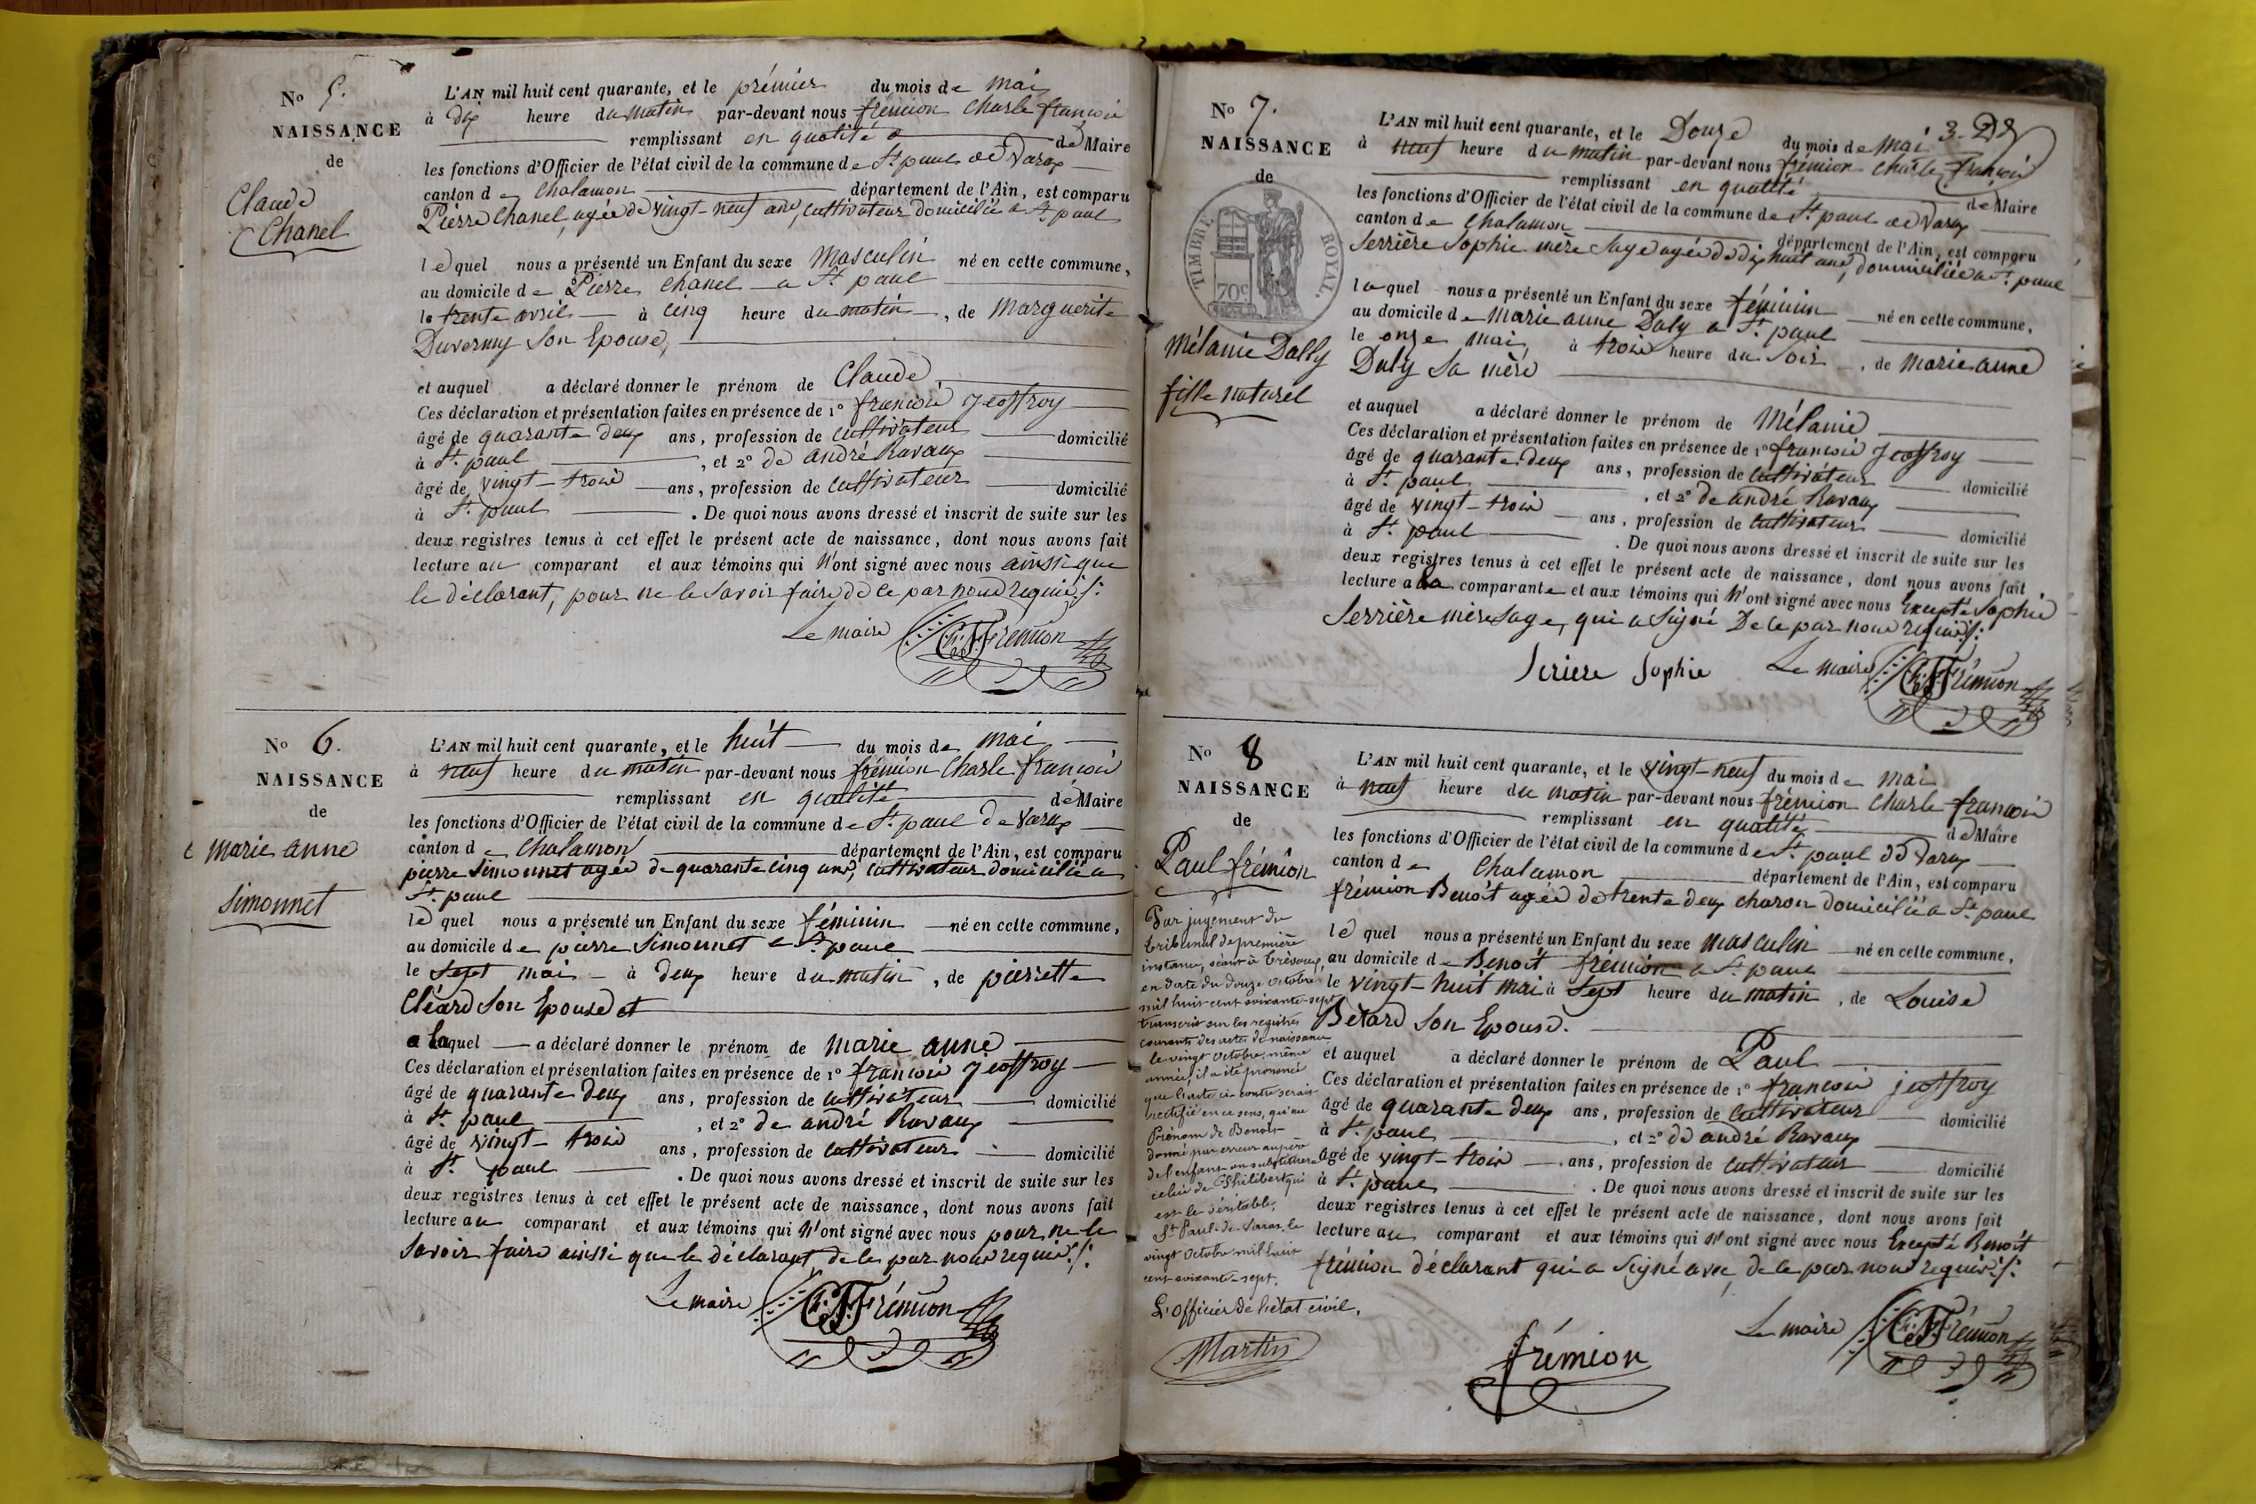 No 5.
NAISSANCE
de
Claude
Chanel
L'AN mil huit cent quarante, et le prémier du mois de mai
à dix heure du matin par-devant nous frémion Charle françois
remplissant en qualité de Maire
les fonctions d'Officier de l'état civil de la commune de St. paul de Varax
canton de Chalamon département de l'Ain, est comparu
Pierre Chanel, agée de vingt-neuf ans, Cultivateur domiciliée a St. paul
lequel nous a présenté un Enfant du sexe Masculin né en cette commune,
au domicile de Pierre Chanel a St. paul
le trente avril à cinq heure du matin, de Marguerite
Duvernay Son Epouse,
et auquel a déclaré donner le prénom de Claude
Ces déclaration et présentation faites en présence de 1° françois Jeoffroy
âgé de quarante deux ans, profession de Cultivateur domicilié
à St. paul, et 2° de andré Ravaux
âgé de vingt-trois ans, profession de Cultivateur domicilié
à St. paul. De quoi nous avons dressé et inscrit de suite sur les
deux registres tenus à cet effet le présent acte de naissance, dont nous avons fait
lecture au comparant et aux témoins qui N'ont signé avec nous ainsi que
le déclarant, pour ne le Savoir faire de ce par nous requis ./.
Le maire Ch. F. Frémion
No 6.
NAISSANCE
de
marie anne
Simonnet
L'AN mil huit cent quarante, et le huit du mois de mai
à neuf heure du matin par-devant nous frémion Charle françois
remplissant en qualité de Maire
les fonctions d'Officier de l'état civil de la commune de St. paul de Varax
canton de Chalamon département de l'Ain, est comparu
pierre Simonnet agée de quarante cinq ans, Cultivateur domiciliée a
St. paul
lequel nous a présenté un Enfant du sexe féminin né en cette commune,
au domicile de pierre Simonnet a St. paul
le Sept mai à deux heure du matin, de pierrette
Cléard Son Epouse et
a laquel a déclaré donner le prénom de marie anne
Ces déclaration et présentation faites en présence de 1° françois Jeoffroy
âgé de quarante deux ans, profession de Cultivateur domicilié
à St. paul, et 2° de andré Ravaux
âgé de vingt-trois ans, profession de Cultivateur domicilié
à St. paul. De quoi nous avons dressé et inscrit de suite sur les
deux registres tenus à cet effet le présent acte de naissance, dont nous avons fait
lecture au comparant et aux témoins qui N'ont signé avec nous pour ne le
Savoir faire ainssi que le déclarant de le par nous requis ./.
Le maire Ch. F. Frémion
3.
No 7.
NAISSANCE
de
TIMBRE ROYAL.
70c
Mélanie Dally
fille naturel
L'AN mil huit cent quarante, et le Douze du mois de mai
à neuf heure du matin par-devant nous frémion Charle françois
remplissant en qualité de Maire
les fonctions d'Officier de l'état civil de la commune de St. paul de Varax
canton de Chalamon département de l'Ain, est comparu
Serrière Sophie mère Sage agée de dix huit ans, domiciliée a St. paul
laquel nous a présenté un Enfant du sexe féminin né en cette commune,
au domicile de marie anne Daly a St. paul
le onze mai, à trois heure du Soir, de marie anne
Daly Sa mère
et auquel a déclaré donner le prénom de Mélanie
Ces déclaration et présentation faites en présence de 1° françois Jeoffroy
âgé de quarante deux ans, profession de Cultivateur domicilié
à St. paul, et 2° de andré Ravaux
âgé de vingt-trois ans, profession de Cultivateur domicilié
à St. paul. De quoi nous avons dressé et inscrit de suite sur les
deux registres tenus à cet effet le présent acte de naissance, dont nous avons fait
lecture a la comparante et aux témoins qui N'ont signé avec nous Excepté Sophie
Serrière mère Sage, qui a Signé De le par nous requis ./.
Seriere Sophie Le maire Ch. F. Frémion
No 8
NAISSANCE
de
Paul frémion
Par jugement du
tribunal de première
instance, séant à Trévoux,
en date du douze octobre
mil huit cent soixante-sept
transcrit sur les registres
courants des actes de naissance
le vingt octobre, même
année, il a été prononcé
que l'acte ci-contre serait
rectifié en ce sens, qu'au
Prénom de Benoît
donné par erreur au père
de l'enfant on substituera
celui de Philibert qui
est le véritable.
St. Paul-de-Varax, le
vingt octobre mil huit
cent soixante-sept.
L'Officier de l'état civil,
Martin
L'AN mil huit cent quarante, et le vingt-neuf du mois de mai
à neuf heure du matin par-devant nous frémion Charle françois
remplissant en qualité de Maire
les fonctions d'Officier de l'état civil de la commune de St. paul de Varax
canton de Chalamon département de l'Ain, est comparu
frémion Benoît agée de trente deux charon domiciliée a St. paul
lequel nous a présenté un Enfant du sexe masculin né en cette commune,
au domicile de Benoît frémion a St. paul
le vingt-huit mai à Sept heure du matin, de Louise
Bétard Son Epouse.
et auquel a déclaré donner le prénom de Paul
Ces déclaration et présentation faites en présence de 1° françois jeoffroy
âgé de quarante deux ans, profession de Cultivateur domicilié
à St. paul, et 2° de andré Ravaux
âgé de vingt-trois ans, profession de Cultivateur domicilié
à St. paul. De quoi nous avons dressé et inscrit de suite sur les
deux registres tenus à cet effet le présent acte de naissance, dont nous avons fait
lecture au comparant et aux témoins qui N'ont signé avec nous Excepté Benoît
frémion déclarant qui a Signé avec, de le par nous requis ./.
Le maire Ch. F. Frémion
frémion